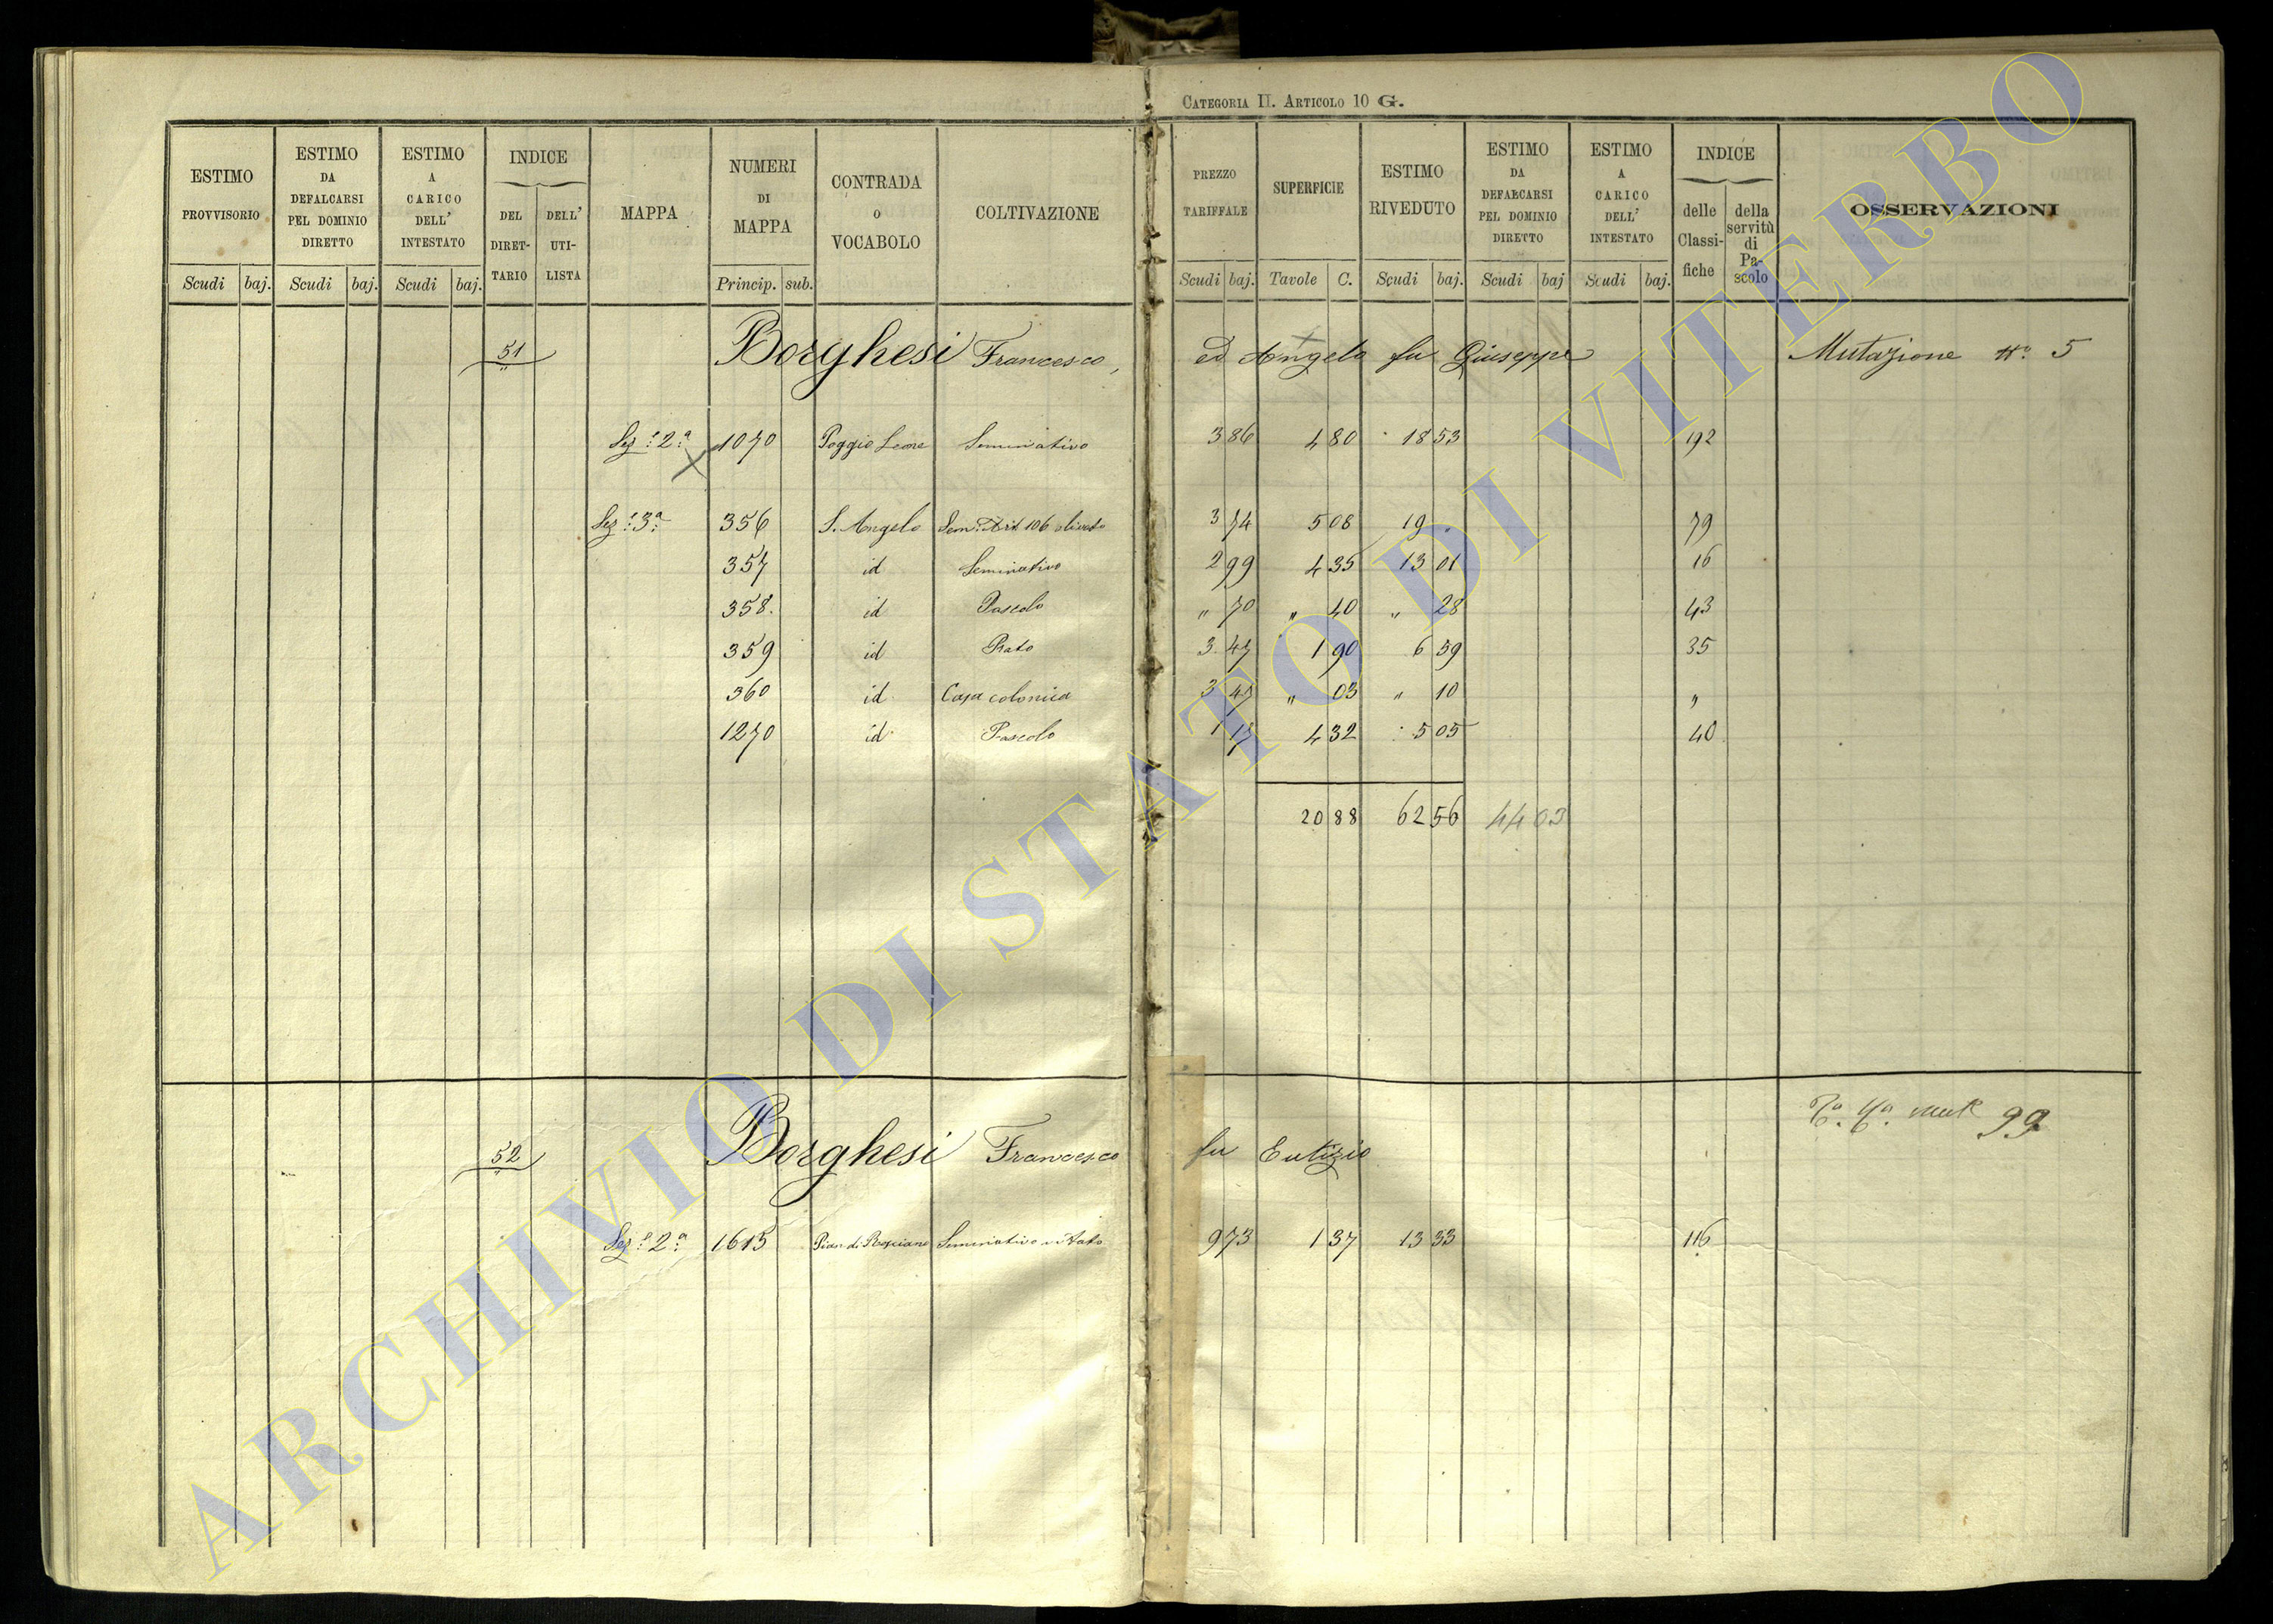 CATEGORIA II. ARTICOLO 10 G.
ESTIMO PROVVISORIO | ESTIMO DA DEFALCARSI PEL DOMINIO DIRETTO | ESTIMO A CARICO DELL' INTESTATO | INDICE DEL DIRET-TARIO | DELL' UTI-LISTA | MAPPA | NUMERI DI MAPPA | CONTRADA O VOCABOLO | COLTIVAZIONE | PREZZO TARIFFALE | SUPERFICIE | ESTIMO RIVEDUTO | ESTIMO DA DEFALCARSI PEL DOMINIO DIRETTO | ESTIMO A CARICO DELL' INTESTATO | INDICE delle Classi-fiche | della servitù di Pa-scolo | OSSERVAZIONI
Scudi baj. Scudi baj. Scudi baj. Princip. sub. Scudi baj. Tavole C. Scudi baj. Scudi baj Scudi baj.
51 Borghesi Francesco, ed Angelo fu Giuseppe Mutazione No. 5
Sez. 2a X 1070 Poggio Leone Seminativo 3 86 4 80 18 53 192
Sez. 3a 356 S. Angelo Sem. Art 106 olivato 3 74 5 08 19 . 79
357 id Seminativo 2 99 4 35 13 01 16
358. id Pascolo " 70 " 40 " 28 43
359 id Prato 3 47 1 90 6 59 35
360 id Casa colonica 3 47 " 03 " 10 "
1270 id Pascolo 1 17 4 32 5 05 40
20 88 62 56 44 03
99
52 Borghesi Francesco fu Eutizio
Sez. 2a 1615 Pian di Seminativo vitato 9 73 1 37 13 33 116
ARCHIVIO DI STATO DI VITERBO